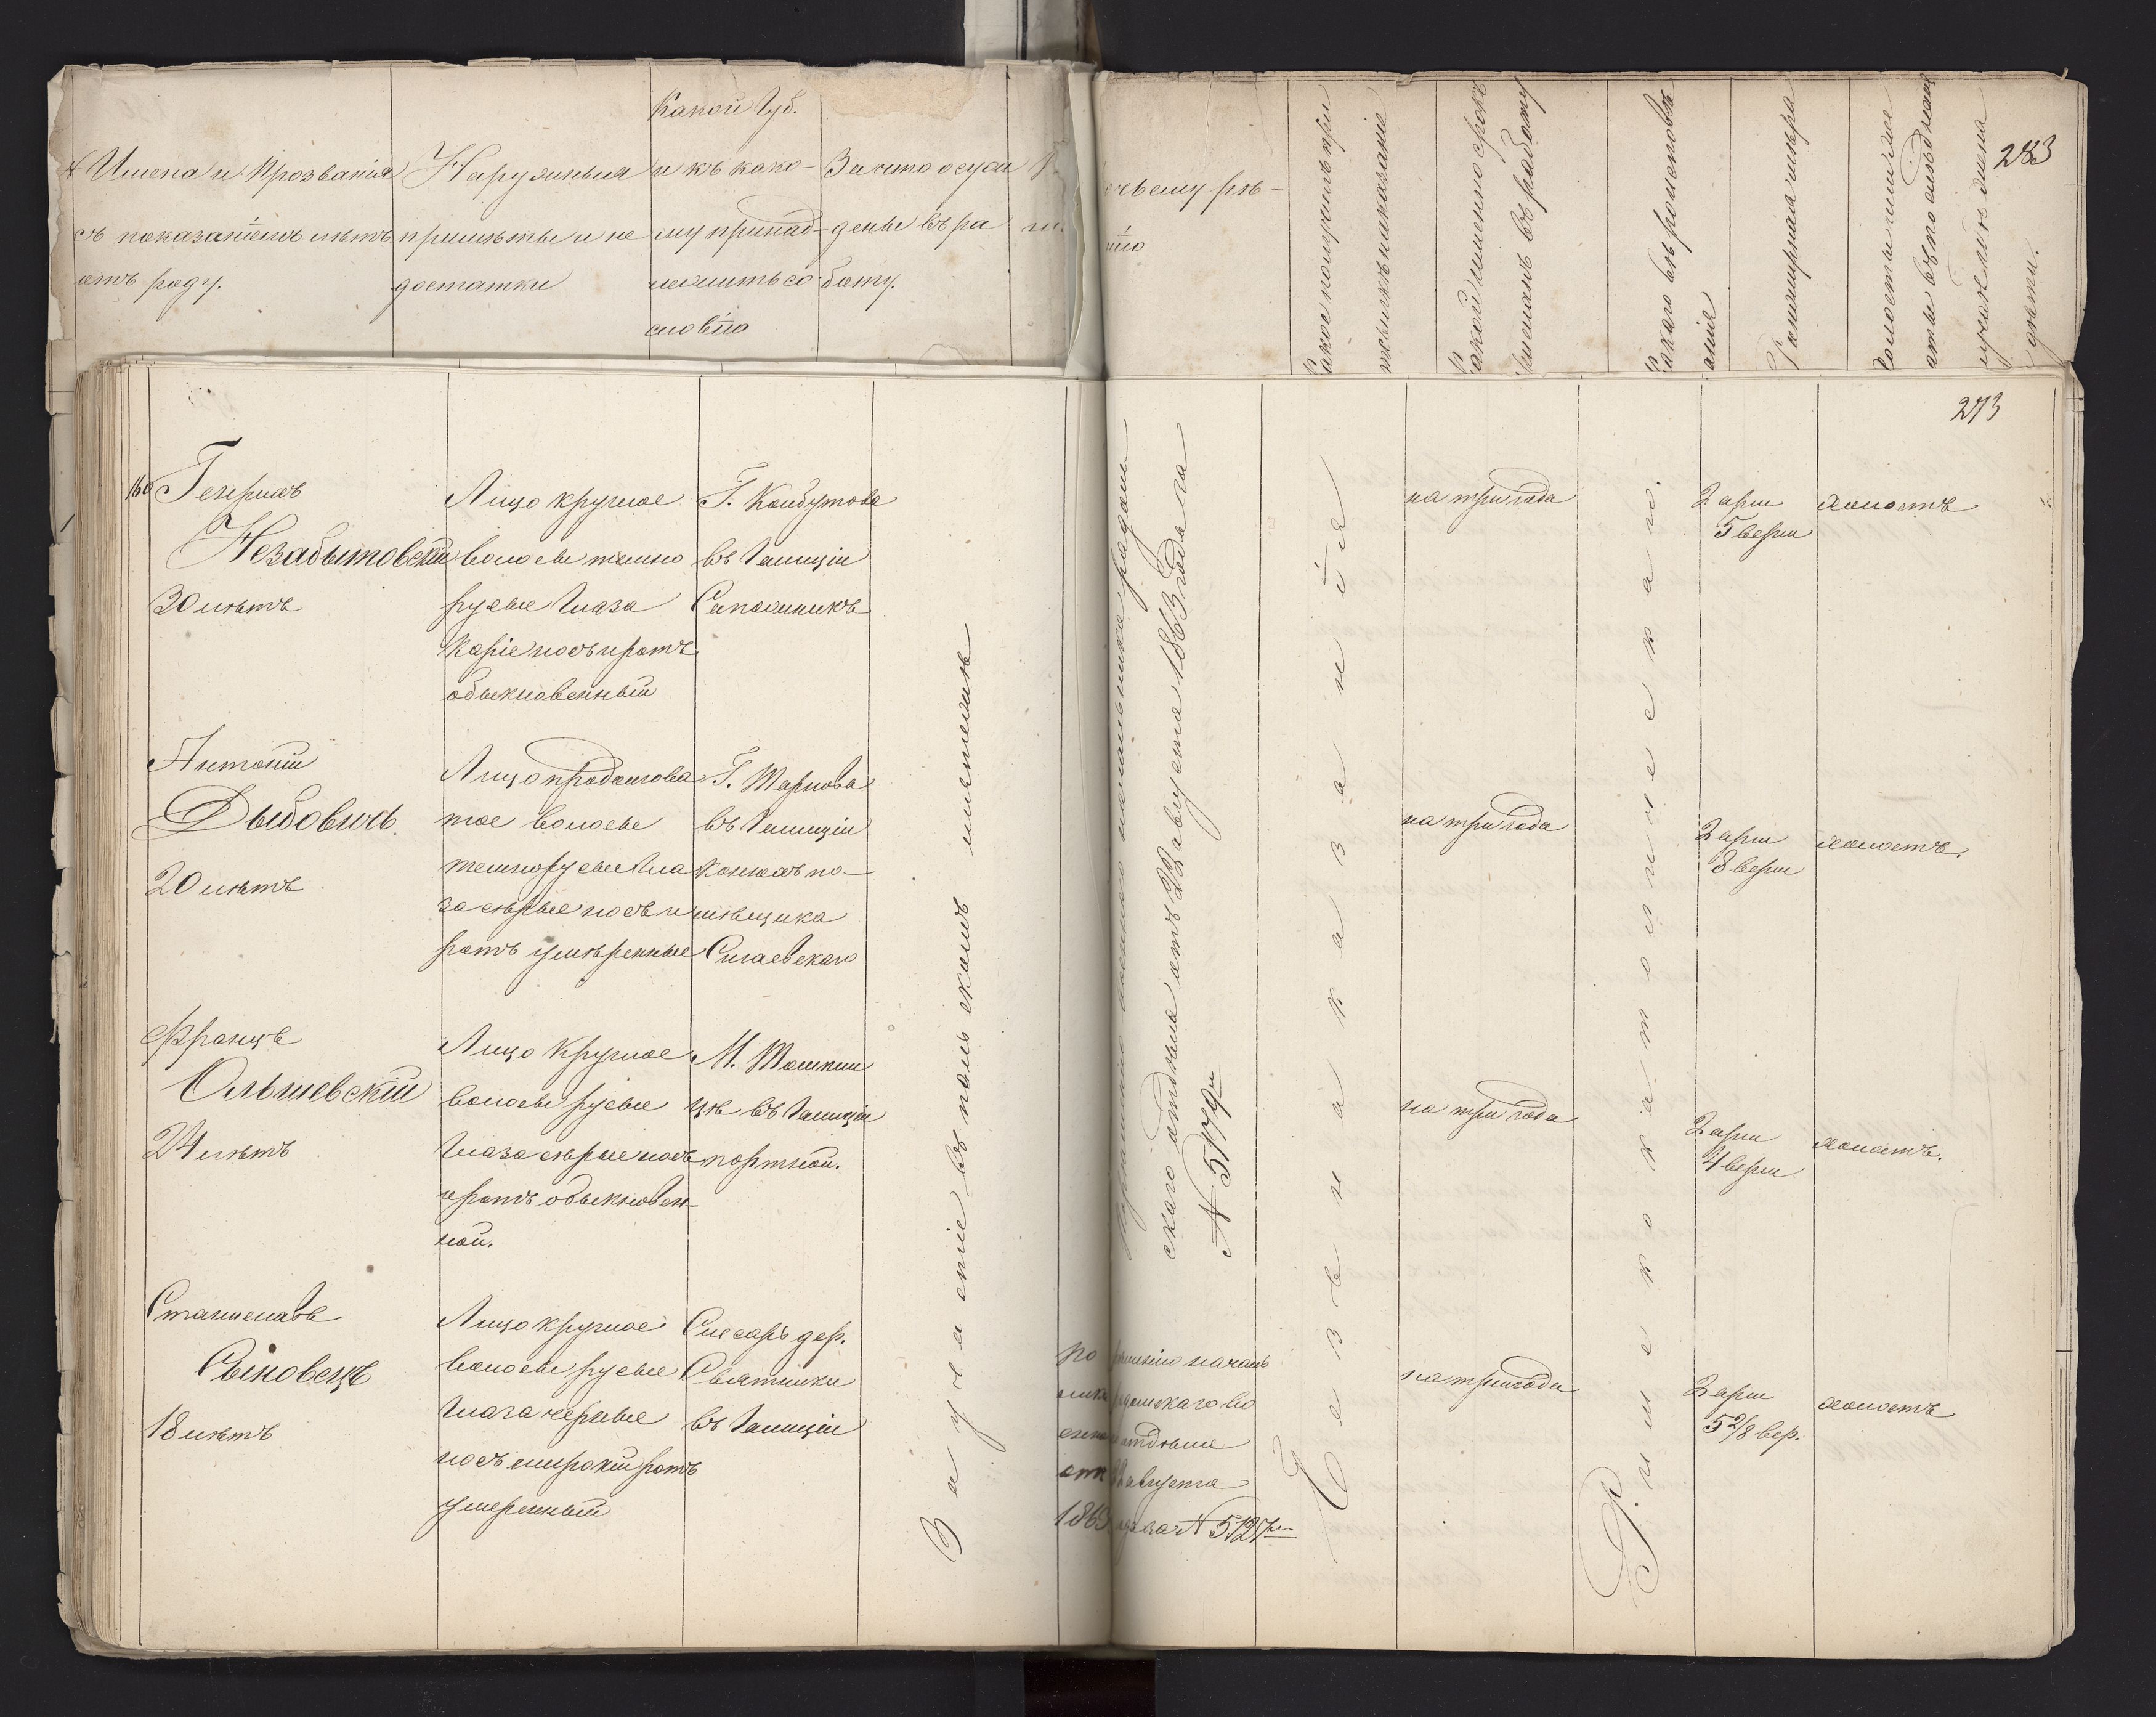 Имена и Прозванія
съ показаніемъ лѣтъ
отъ роду.
Наружныя
примѣты и не
достатки
Какой Губ.
и къ како-
му принад-
лежитъ со
словію
За что осуж
дены въ ра
боту.
чьему рѣ-
нію
Какое получилъ при
тѣлѣ наказаніе
Какой именно срокъ
въ работу
Какого вѣроисповѣд
аніе
283
273
160 Генрихъ
Незабытовскій
30 лѣтъ
Лицо круглое
волосы темно
русые Глаза
Каріе носъ и ротъ
обыкновенный
Г. Колбутова
въ Галиціи
Сапожникъ
на три года
2 арш
5 верш
холостъ
Антоній
Дыбовичъ.
20 лѣтъ
Лицо продолгова
тое волосы
темнорусые Гла
за сѣрые носъ и
ротъ умѣренные
Г. Тарнова
въ Галиціи
Конюхъ по-
мѣщика
на три года
2 арш
8 верш
холостъ.
Францъ
Ольшевскій
24 лѣтъ
Лицо Круглое
волосы русые
Глаза сѣрые носъ
и ротъ обыкновен-
ной.
М.
цѣ въ Галиціи
портной.
на три года
2 арш
4 верш
холостъ.
Станиславъ
Сыновецъ
18 лѣтъ
Лицо круглое
волосы русые
Глаза черные
носъ широкій ротъ
умеренный
Слесарь дер.
Святники
въ Галиціи
на три года
2 арш
5 2/8 вер.
холостъ
За участіе въ польскомъ мятежѣ
скаго отдѣла отъ 22 августа 1863 года за
№ 5179м
по рѣшенію началь
ника Радомскаго во
еннаго отдѣла
отъ 22 августа
1863 года за № 5125м
Безъ наказанія
Римско католическаго.